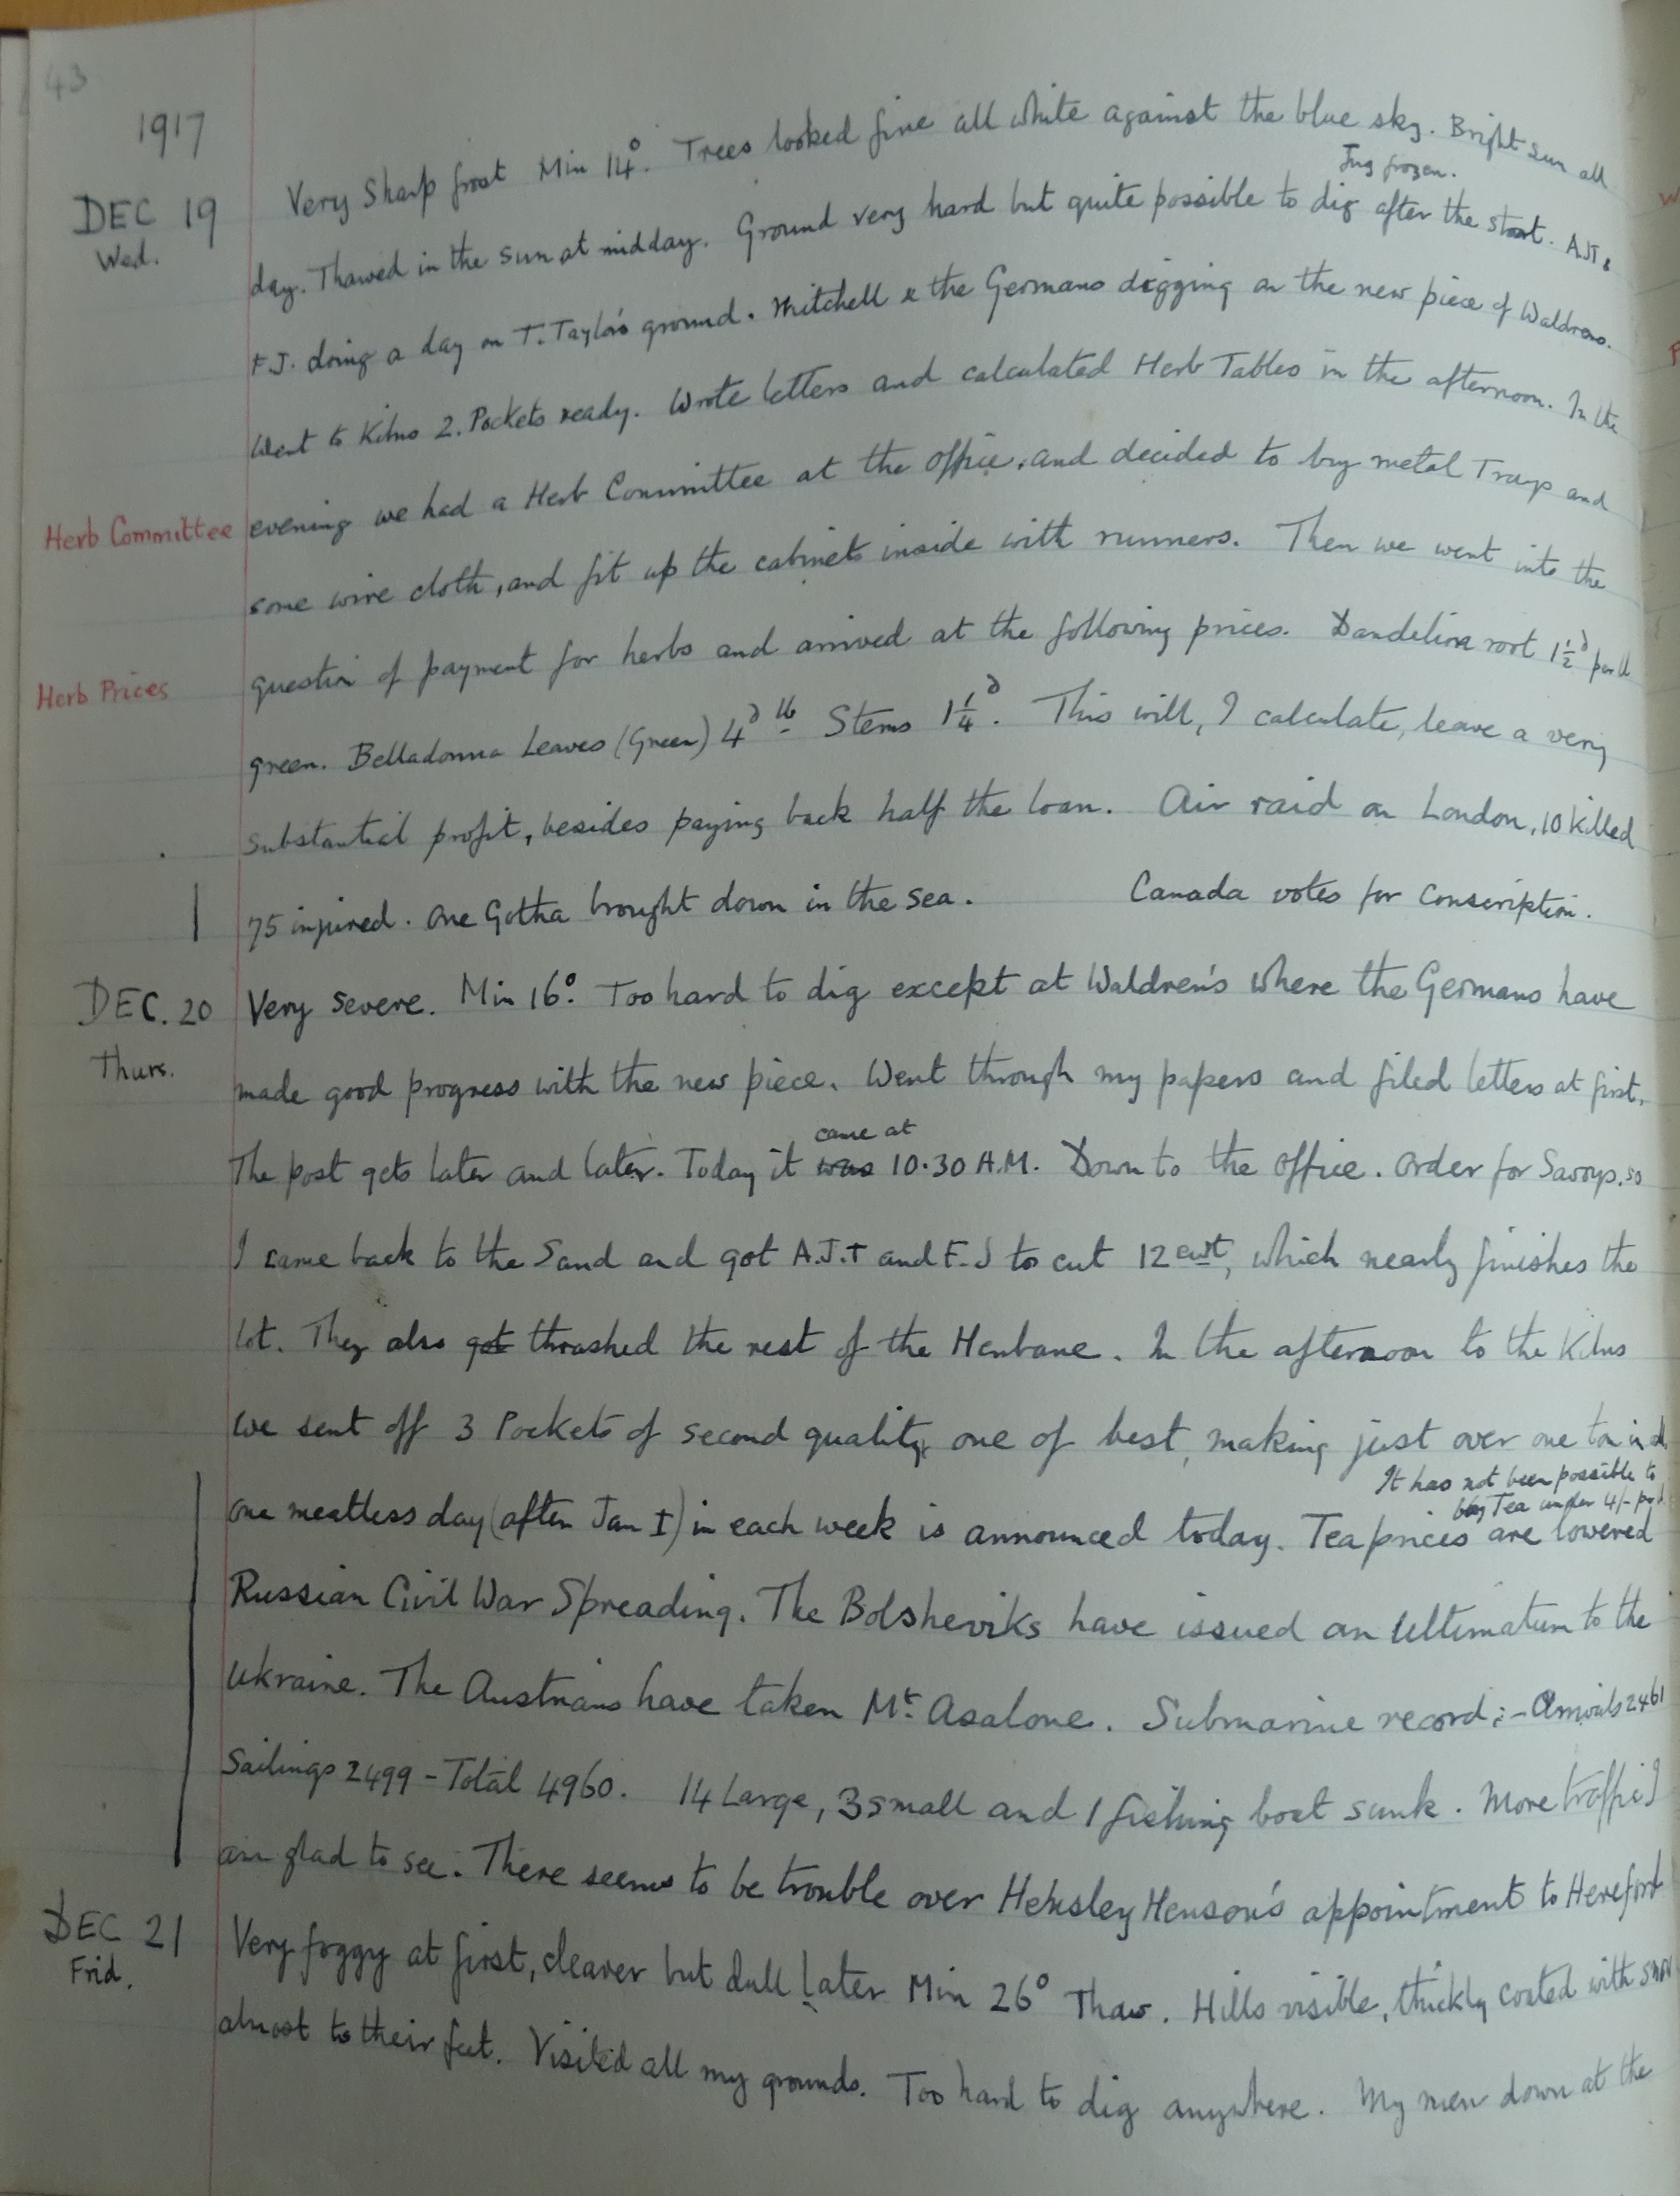 43
1917
DEC 19
Wed.
Very Sharp frost Min 14°. Trees looked fine all white against the blue sky. Bright sun all
Jug frozen.
day. Thawed in the sun at midday. Ground very hard but quite possible to dig after the start. AJT &
F.J. doing a day on T. Taylor's ground. Mitchell & the Germans digging on the new piece of Waldrens.
Went to Kilns 2. Pockets ready. Wrote letters and calculated Herb Tables in the afternoon. In the
Herb Committee evening we had a Herb Committee at the office, and decided to buy metal Trays and
some wire cloth, and fit up the cabinets inside with runners. Then we went into the
Herb Prices question of payment for herbs and arrived at the following prices. Dandelion root 1½d per lb
green. Belladonna Leaves (Green) 4d lb Stems 1¼d. This will, I calculate, leave a very
substantial profit, besides paying back half the loan. Air raid on London, 10 killed
75 injured. One Gotha brought down in the sea. Canada votes for Conscription.
DEC. 20
Thurs.
Very severe. Min 16°. Too hard to dig except at Waldren's where the Germans have
made good progress with the new piece. Went through my papers and filed letters at first.
came at
The post gets later and later. Today it was 10.30 A.M. Down to the office. Order for Savoys, so
I came back to the Sand and got A.J.T and F.J to cut 12 cwt, which nearly finishes the
lot. They also got thrashed the rest of the Henbane. In the afternoon to the Kilns
We sent off 3 Pockets of second quality, one of best, making just over one ton in all.
It has not been possible to
buy Tea under 4/- per lb
One meatless day (after Jan I) in each week is announced today. Tea prices are lowered
Russian Civil War Spreading. The Bolsheviks have issued an Ultimatum to the
Ukraine. The Austrians have taken Mt. Asalone. Submarine record:- Arrivals 2461
Sailings 2499 - Total 4960. 14 Large, 3 small and 1 fishing boat sunk. More traffic I
am glad to see. There seems to be trouble over Hensley Henson's appointment to Hereford
DEC 21
Frid.
Very foggy at first, clearer but dull later Min 26° Thaw. Hills visible, thickly coated with snow
almost to their feet. Visited all my grounds. Too hard to dig anywhere. My men down at the